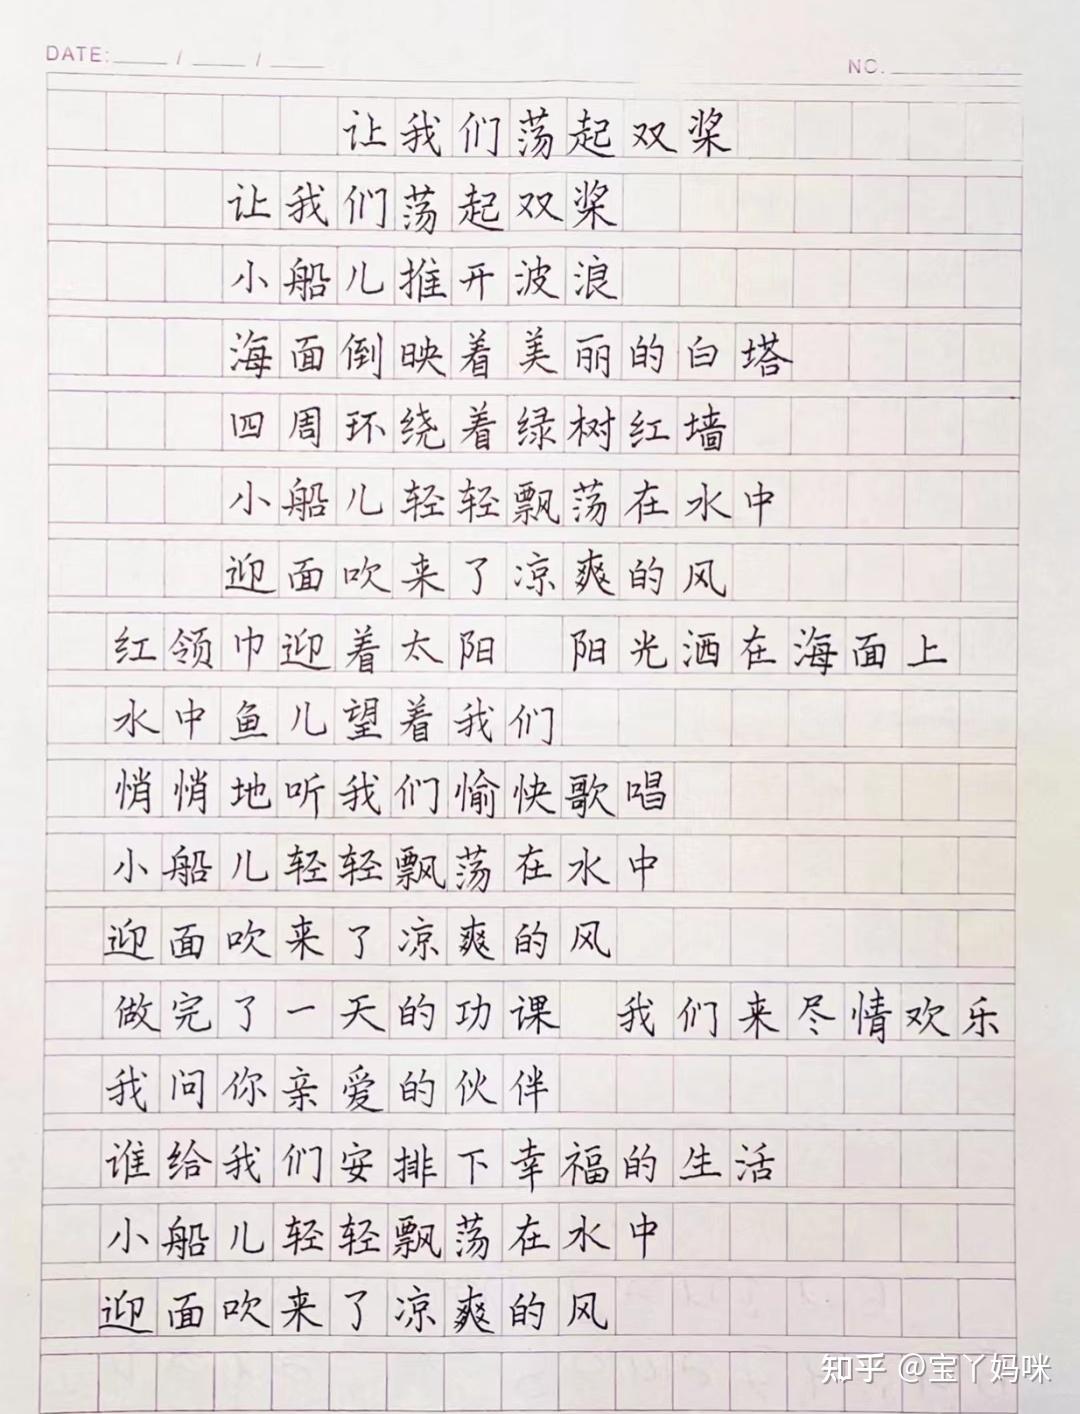 DATE:____/____/____
NO.________
让我们荡起双桨
让我们荡起双桨
小船儿推开波浪
海面倒映着美丽的白塔
四周环绕着绿树红墙
小船儿轻轻飘荡在水中
迎面吹来了凉爽的风
红领巾迎着太阳 阳光洒在海面上
水中鱼儿望着我们
悄悄地听我们愉快歌唱
小船儿轻轻飘荡在水中
迎面吹来了凉爽的风
做完了一天的功课 我们来尽情欢乐
我问你亲爱的伙伴
谁给我们安排下幸福的生活
小船儿轻轻飘荡在水中
迎面吹来了凉爽的风
知乎 @宝丫妈咪